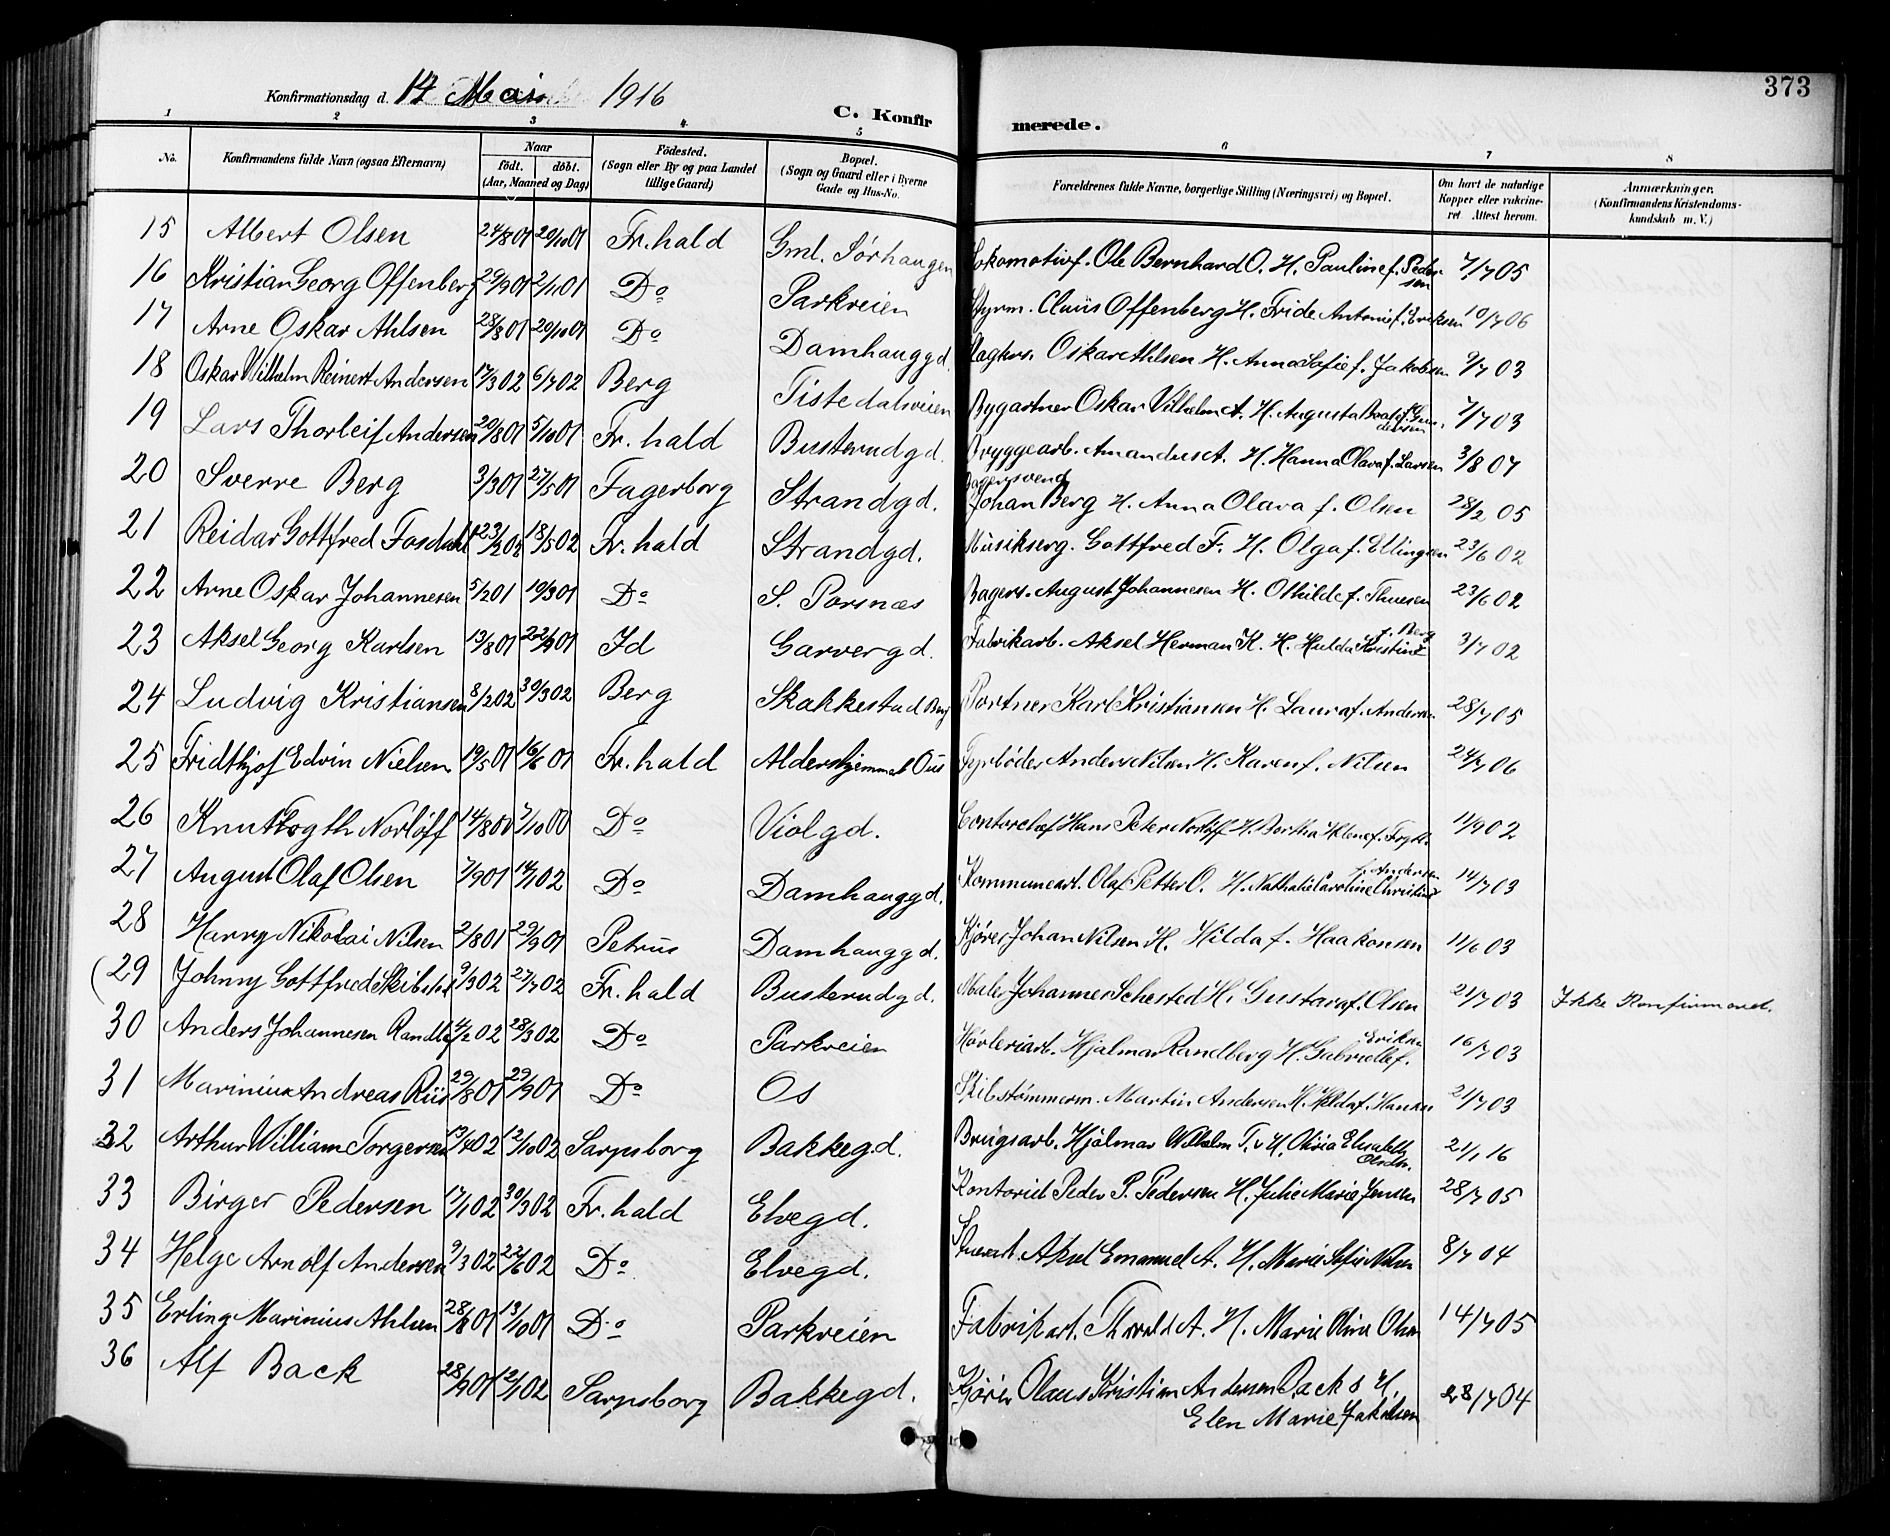 373
Konfirmationsdag d. 14 Mai 1916
C. Konfirmerede.
1 2 3 4 5 6 7 8
No. Konfirmandens fulde Navn (ogsaa Efternavn) Naar födt. döbt. (Aar, Maaned og Dag) Födested. (Sogn eller By og paa Landet tillige Gaard) Bopæl. (Sogn og Gaard eller i Byerne Gade og Hus-No. Forældrenes fulde Navne, borgerlige Stilling (Næringsvei) og Bopæl. Om havt de naturlige Kopper eller vakcineret. Attest herom. Anmærkninger. (Konfirmandens Kristendomskundskab m. V.)
15 Albert Olsen 24/8 01 20/10 01 Fr.hald Gml. Sørhaugen Lokomotivf. Ole Bernhard O. H. Pauline f. Pedersen 7/7 05
16 Kristian Georg Offenberg 29/9 01 2/11 01 Do Parkveien Styrm. Claus Offenberg H. Fride Antonie f. Eriksen 10/7 06
17 Arne Oskar Ahlsen 28/8 01 20/10 01 Do Damhauggd. Oskar Ahlsen H. Anna Sofie f. Jakobsen 9/7 03
18 Oskar Wilhelm Reinert Andersen 17/3 02 6/7 02 Berg Tistedalsveien Bygartner Oskar Vilhelm A. H. Augusta f. Gundersen 7/7 03
19 Lars Thorleif Andersen 20/8 01 5/10 01 Fr. hald Busterudgd. Bryggearb. Amandus A. H. Hanna Olava f. Larsen 3/8 07
20 Sverre Berg 3/3 01 27/5 01 Fagerborg Strandgd. Bagersvend Johan Berg H. Anna Olava f. Olsen 28/2 05
21 Reidar Gottfred Fosdahl 23/2 02 18/5 02 Fr. hald Strandgd. Musikserg. Gottfred F. H. Olga f. Ellingsen 23/6 02
22 Arne Oskar Johannesen 5/2 01 10/3 01 Do S. Porsnæs Bagers. August Johannesen H. Othilde f. Thuesen 23/6 02
23 Aksel Georg Karlsen 13/8 01 22/9 01 Id Garvergd. Fabrikarb. Aksel Herman K. H. Hulda Kristine f. Berg 3/7 02
24 Ludvig Kristiansen 8/2 02 30/3 02 Berg Skakkestad Berg Portner Karl Kristiansen H. Laura f. Andersen 28/7 05
25 Fridthjof Edvin Nielsen 19/5 01 16/6 01 Fr.hald Aldershjemmet Ous Fyrbøder Anders Nilsen H. Karen f. Nilsen 24/7 06
26 Knut Norløff 14/8 00 7/10 00 Do Violgd. Contorchef Hans Peter Norløff H. Bertha Helene f. 11/9 02
27 August Olaf Olsen 7/9 01 14/1 02 Do Damhauggd. Kommunearb. Olaf Petter O. H. Nathalie Caroline Christine f. Andersen 14/7 03
28 Harry Nikolai Nilsen 2/8 01 29/9 01 Petrus Damhauggd. Kjører Johan Nilsen H. Hilda f. Haakonsen 11/6 03
(29 Johny Gottfred 9/3 02 27/7 02 Fr. hald Busterudgd. Maler Johannes Schested H. Gustava f. Olsen 21/7 03 Ikke Konfirmeret.
30 Anders Johannesen Randberg 4/2 02 28/3 02 Do Parkveien Høvleriarb. Hjalmar Randberg H. Gabrielle f. Eriksen 16/7 03
31 Marinius Andreas Riis 29/8 01 29/9 01 Do Os Skibstømmerm. Martin Andersen H. Hilda f. Hansen 21/7 03
32 Arthur William Torgersen 13/4 02 12/10 02 Sarpsborg Bakkegd. Brugsarb. Hjalmar Wilhelm T. & H. Elisabeth Olsdtr. 21/1 16
33 Birger Pedersen 17/1 02 30/3 02 Fr. hald Elvegd. Kontorist Peder P. Pedersen H. Julie Marie Jensen 28/7 05
34 Helge Arnolf Andersen 9/3 02 22/6 02 Do Elvegd. Aksel Emanuel A. H. Marie Sofie Nilsen 8/7 04
35 Erling Marinius Ahlsen 28/8 01 13/10 01 Do Parkveien Fabrikarb. Thorvald A. H. Marie Oline Olsen 14/7 05
36 Alf Back 28/9 01 12/1 02 Sarpsborg Bakkegd. Kjører Olaus Kristian Andersen Back & H. Elen Marie Jakobsen 28/7 04